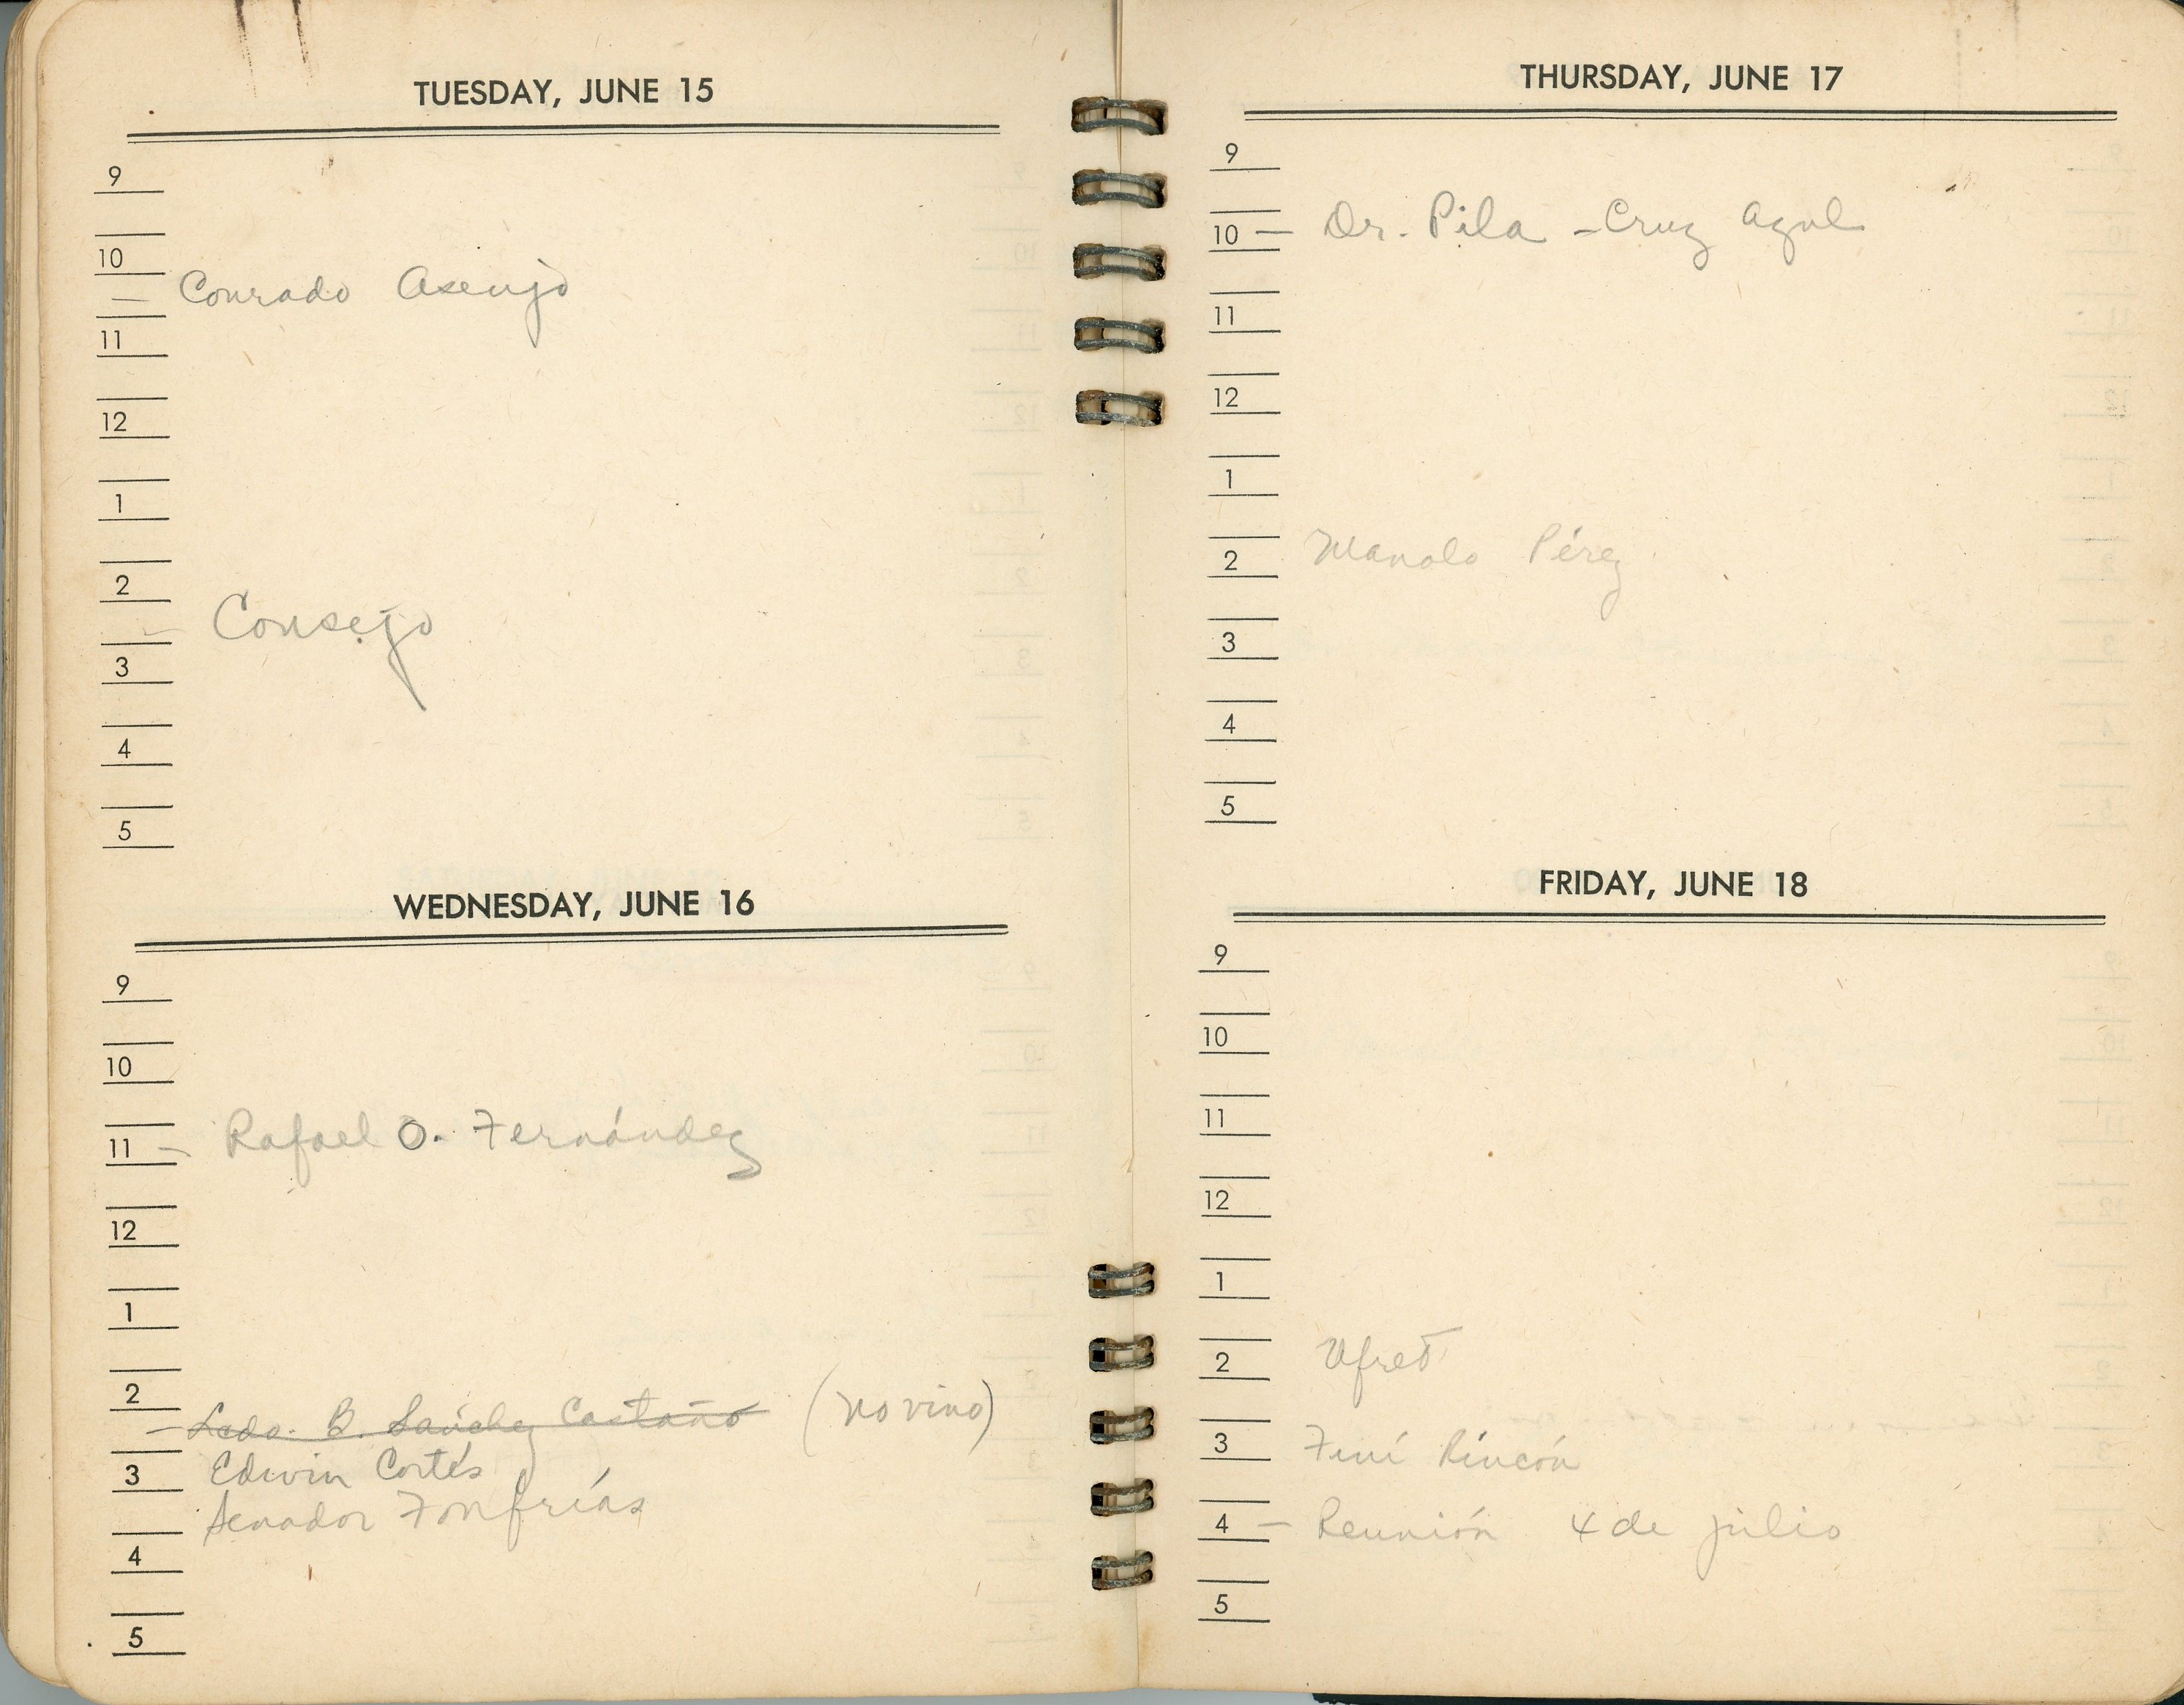 TUESDAY, JUNE 15
9
10
— Conrado Asenjo
11
12
1
2
— Consejo
3
4
5
WEDNESDAY, JUNE 16
9
10
11 — Rafael O. Fernández
12
1
2
— Lcdo. B. Sánchez Castaño (no vino)
3 Edwin Cortés
Senador Fonfrías
4
5
THURSDAY, JUNE 17
9
10 — Dr. Pila - Cruz Azul
11
12
1
2 Manolo Pérez
3
4
5
FRIDAY, JUNE 18
9
10
11
12
1
2 Ufret
3 Finí Rincón
4 — Reunión 4 de julio
5